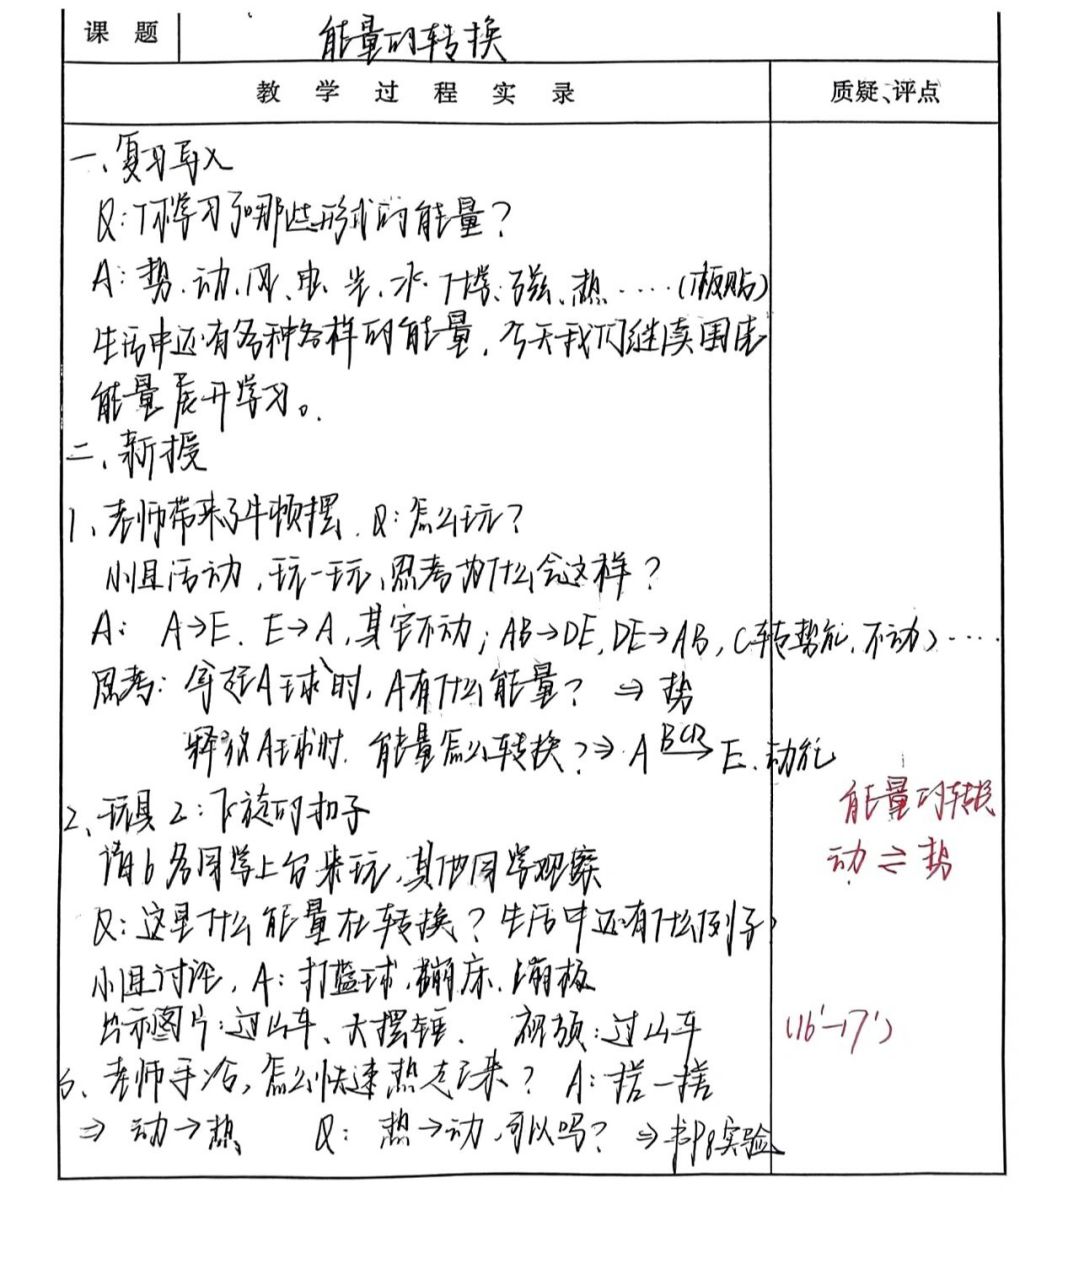 课 题 能量的转换
教 学 过 程 实 录 质疑、评点
一、复习导入
Q:你学习了哪些形式的能量?
A:势、动、风、电、光、水、化学、磁、热……(板贴)
生活中还有各种各样的能量,今天我们继续围绕
能量展开学习。
二、新授
1、老师带来了牛顿摆. Q:怎么玩?
小组活动,玩一玩,思考为什么会这样?
A: A→E. E→A,其它不动;AB→DE,DE→AB,C(转势能,不动)……
思考:拿起A球时,A有什么能量? ⇒ 势
释放A球时,能量怎么转换?⇒ A BCD→ E.动能
2、玩具2:飞旋的扣子
请6名同学上台来玩,其他同学观察
能量的转换
动 ⇌ 势
Q:这里什么能量在转换?生活中还有什么例子?
小组讨论, A:打篮球、蹦床、跷板
出示图片:过山车、大摆锤. 视频:过山车
(16'-17')
3、老师手冷,怎么快速热起来? A:搓一搓
⇒ 动→热 Q: 热→动,可以吗? ⇒书P8实验